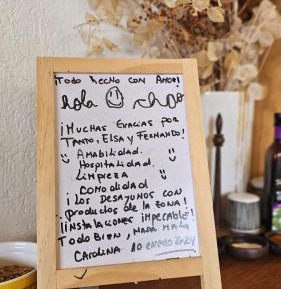 ¡Todo hecho con Amor!
hola chao
¡Muchas Gracias por
Tanto, Elsa y Fernando!
Amabilidad.
Hospitalidad.
Limpieza
Comodidad
¡Los Desayunos con
productos de la zona!
¡Instalaciones impecable!
Todo Bien, nada malo
Carolina 10 enero 2024